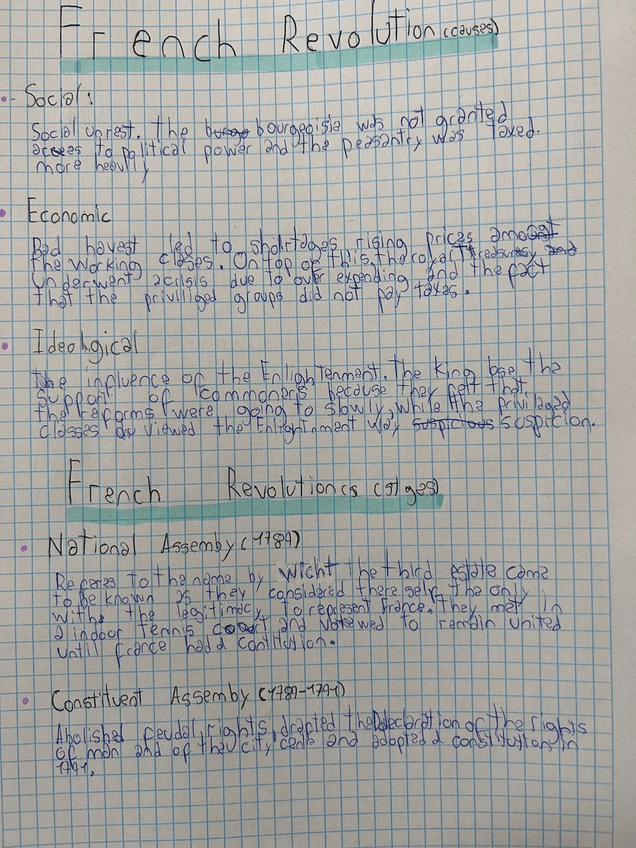 French Revolution (causes)
Social:
Social unrest. The bourgeoisie was not granted
access to political power and the peasantry was taxed.
more heavily
Economic
Bad havest led to shortages rising prices amost
the working clases. On top of this, the royal Treasurey and
underwent acrisis due to over expending and the fact
that the privilliged groups did not pay taxes.
Ideolgical
The influence on the EnlighTenment. The King lose the
support of commoners because they felt that
the reforms were going to slowly, while the privilaged
classes viewed the Enlightnment way suspicious suspicion.
French Revolutioncs (stages)
National Assembly (1789)
Referes to the name by wicht the third estate came
to be known as they considered there self the only
withe the legitimacy to represent France. They met in
a indoor tennis court and votewed to remain united
until france had a contitution.
Constituent Assembly (1789-1791)
Abolished feudal rights, drapted the Ddeclaration of the rights
of man and of the city cens and adopted a constitution in
1791.